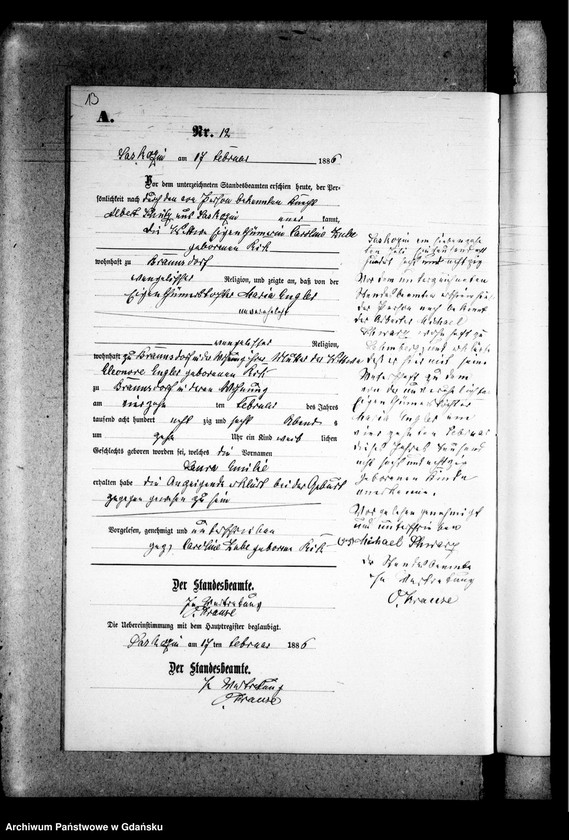 13
A.
Nr. 12
Saskozin am 17 Februar 1886
Vor dem unterzeichneten Standesbeamten erschien heute, der Per-
sönlichkeit nach durch den von Person bekannten Knecht
Albert aus Saskozin aner kannt,
die Wittwe Eigenthümerin Caroline
geborenen
wohnhaft zu Braunsdorf
evangelischer Religion, und zeigte an, daß von der
Eigenthümertochter Maria Engler
unverehelicht
evangelischer Religion,
wohnhaft zu Braunsdorf in der Wohnung ihrer Mutter der Wittwe
Eleonore Engler geborenen
zu Braunsdorf in deren Wohnung
am vierzehn ten Februar des Jahres
tausend acht hundert acht zig und sechs Abends
um zehn Uhr ein Kind weib lichen
Geschlechts geboren worden sei, welches die Vornamen
Laura Emilie
erhalten habe die Anzeigende erklärt bei der Geburt
zugegen gewesen zu sein
Vorgelesen, genehmigt und unterschrieben
gez. Caroline geborene
Der Standesbeamte.
In Vertretung
O. Krause
Die Uebereinstimmung mit dem Hauptregister beglaubigt.
Saskozin am 17 ten Februar 1886
Der Standesbeamte.
In Vertretung
O. Krause
Saskozin am
hundert sechs und achtzig
Vor dem unterzeichneten
Standesbeamten erschien heute
der Person nach bekannt
der Arbeiter Michael
wohnhaft zu
und erklärte
daß er sich als
Vaterschaft zu dem
von der unverehelichten
Eigenthümertochter
Maria Engler am
vierzehnten Februar
dieses Jahres tausend
acht sechs und achtzig
geborenen Kinde
anerkenne.
Vorgelesen genehmigt
und unterschrieben
Michael
der Standesbeamte
In Vertretung
O. Krause
Archiwum Państwowe w Gdańsku